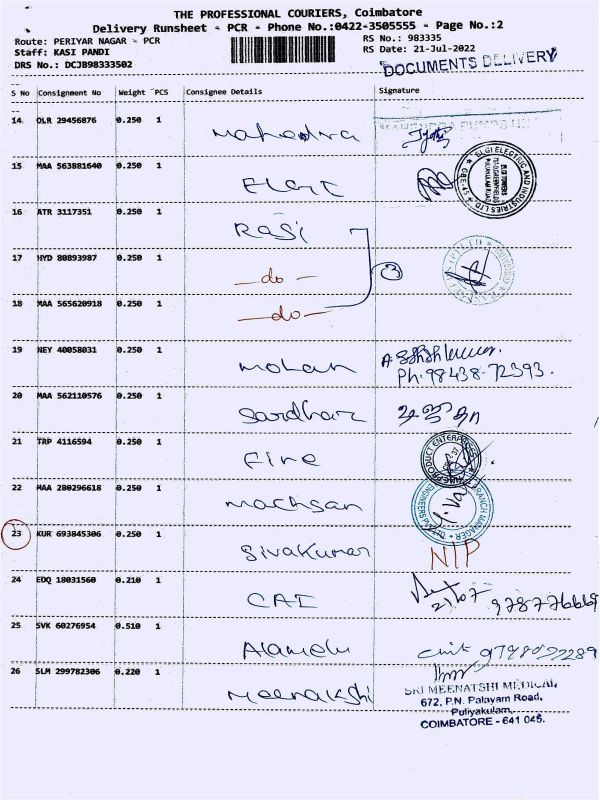 THE PROFESSIONAL COURIERS, Coimbatore
Delivery Runsheet - PCR - Phone No.:0422-3505555 - Page No.:2
Route: PERIYAR NAGAR - PCR
RS No.: 983335
Staff: KASI PANDI
RS Date: 21-Jul-2022
DRS No.: DCJB98333502
DOCUMENTS DELIVERY
S No Consignment No Weight PCS Consignee Details Signature
14 OLR 29456876 0.250 1
Mahendra
15 MAA 563881640 0.250 1
ELGI ELECTRIC AND INDUSTRIES LTD
Elgi
16 ATR 3117351 0.250 1
Rasi
17 HYD 80893987 0.250 1
-do- 3
18 MAA 565620918 0.250 1
-do-
19 NEY 40058031 0.250 1
Mohan
Ph: 98438-72393.
20 MAA 562110576 0.250 1
Sardhar
21 TRP 4116594 0.250 1
Fire
22 MAA 280296618 0.250 1
Machsan
BRANCH MANAGER
23 KUR 693845306 0.250 1
Sivakumar NIP
24 EDQ 18031560 0.210 1
CAI 21/07 978776669
25 SVK 60276954 0.510 1
Alamelu
26 SLM 299782306 0.220 1
Meenakshi
SRI MEENATSHI MEDICAL
672, P.N. Palayam Road,
Puliyakulam,
COIMBATORE - 641 045.